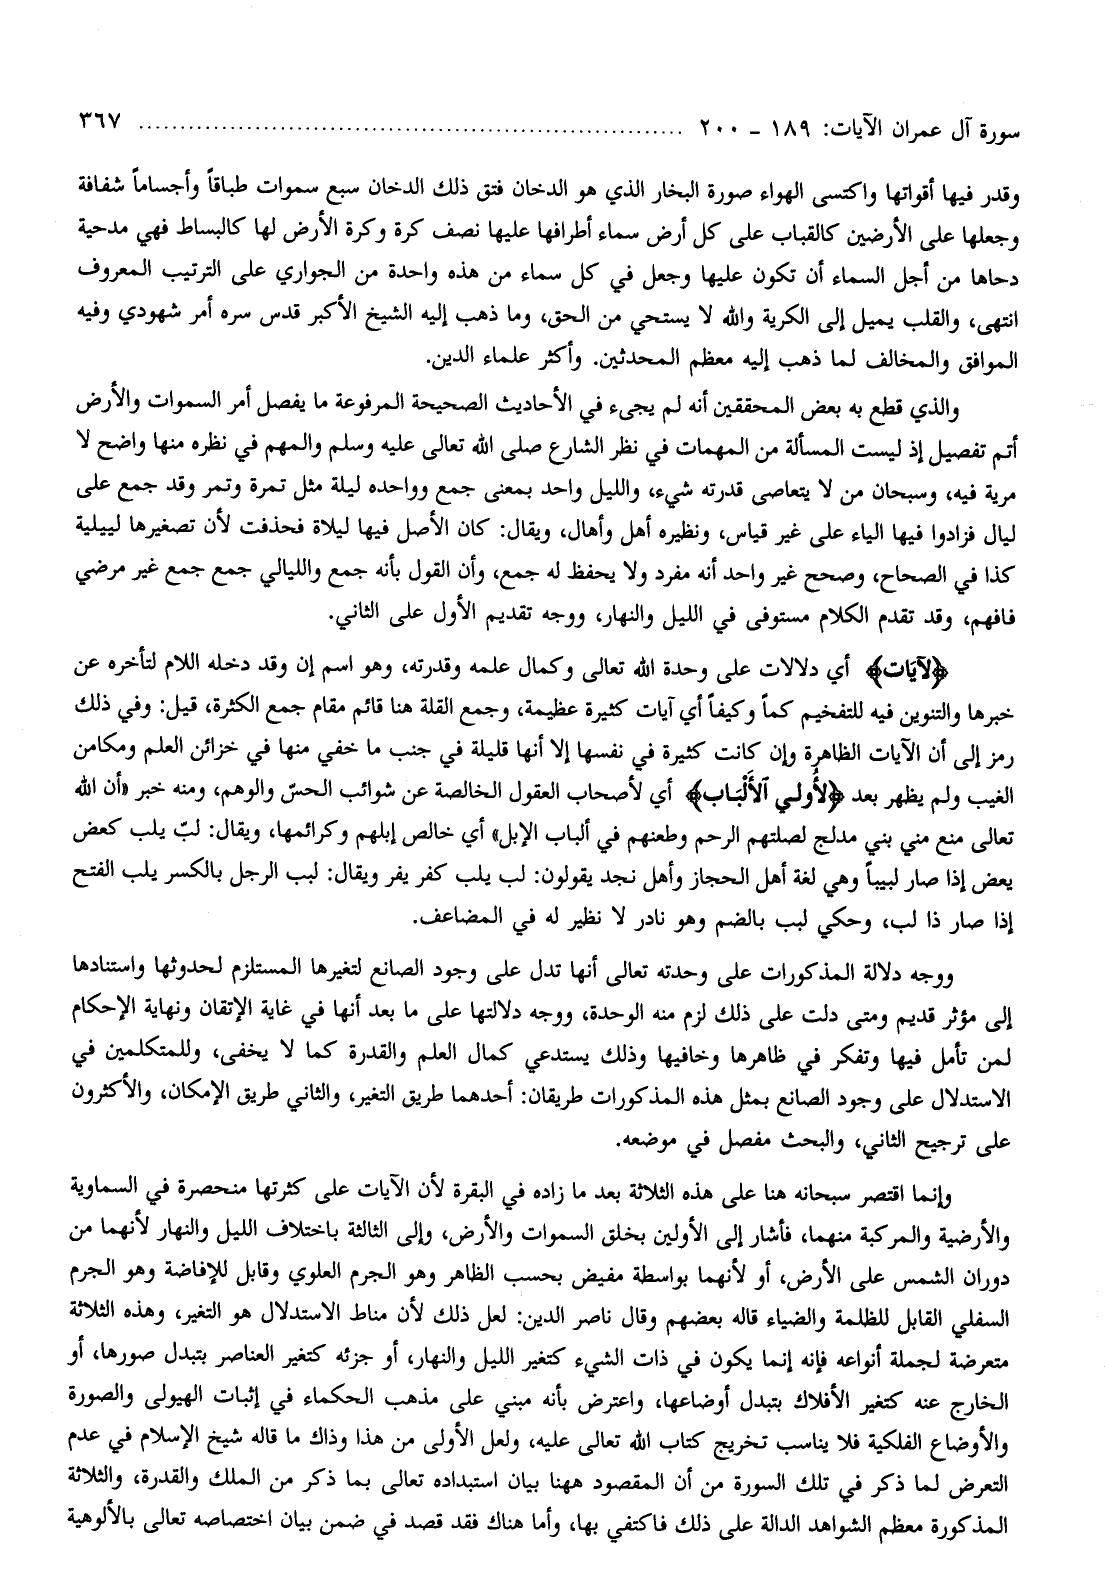 سورة آل عمران الآيات: ١٨٩ - ٢٠٠ ................................................................ ٣٦٧
وقدر فيها أقواتها واكتسى الهواء صورة البخار الذي هو الدخان فتق ذلك الدخان سبع سموات طباقاً وأجساماً شفافة
وجعلها على الأرضين كالقباب على كل أرض سماء أطرافها عليها نصف كرة وكرة الأرض لها كالبساط فهي مدحية
دحاها من أجل السماء أن تكون عليها وجعل في كل سماء من هذه واحدة من الجواري على الترتيب المعروف
انتهى، والقلب يميل إلى الكرية والله لا يستحي من الحق، وما ذهب إليه الشيخ الأكبر قدس سره أمر شهودي وفيه
الموافق والمخالف لما ذهب إليه معظم المحدثين. وأكثر علماء الدين.
والذي قطع به بعض المحققين أنه لم يجىء في الأحاديث الصحيحة المرفوعة ما يفصل أمر السموات والأرض
أتم تفصيل إذ ليست المسألة من المهمات في نظر الشارع صلى الله تعالى عليه وسلم والمهم في نظره منها واضح لا
مرية فيه، وسبحان من لا يتعاصى قدرته شيء، والليل واحد بمعنى جمع وواحده ليلة مثل تمرة وتمر وقد جمع على
ليال فزادوا فيها الياء على غير قياس، ونظيره أهل وأهال، ويقال: كان الأصل فيها ليلاة فحذفت لأن تصغيرها لييلية
كذا في الصحاح، وصحح غير واحد أنه مفرد ولا يحفظ له جمع، وأن القول بأنه جمع والليالي جمع جمع غير مرضي
فافهم، وقد تقدم الكلام مستوفى في الليل والنهار، ووجه تقديم الأول على الثاني.
﴿لآيَات﴾ أي دلالات على وحدة الله تعالى وكمال علمه وقدرته، وهو اسم إن وقد دخله اللام لتأخره عن
خبرها والتنوين فيه للتفخيم كماً وكيفاً أي آيات كثيرة عظيمة، وجمع القلة هنا قائم مقام جمع الكثرة، قيل: وفي ذلك
رمز إلى أن الآيات الظاهرة وإن كانت كثيرة في نفسها إلا أنها قليلة في جنب ما خفي منها في خزائن العلم ومكامن
الغيب ولم يظهر بعد ﴿لأُولي ٱلأَلْبَاب﴾ أي لأصحاب العقول الخالصة عن شوائب الحسّ والوهم، ومنه خبر «أن الله
تعالى منع مني بني مدلج لصلتهم الرحم وطعنهم في ألباب الإبل» أي خالص إبلهم وكرائمها، ويقال: لبّ يلب كعض
يعض إذا صار لبيباً وهي لغة أهل الحجاز وأهل نجد يقولون: لب يلب كفر يفر ويقال: لبب الرجل بالكسر يلب الفتح
إذا صار ذا لب، وحكي لبب بالضم وهو نادر لا نظير له في المضاعف.
ووجه دلالة المذكورات على وحدته تعالى أنها تدل على وجود الصانع لتغيرها المستلزم لحدوثها واستنادها
إلى مؤثر قديم ومتى دلت على ذلك لزم منه الوحدة، ووجه دلالتها على ما بعد أنها في غاية الإتقان ونهاية الإحكام
لمن تأمل فيها وتفكر في ظاهرها وخافيها وذلك يستدعي كمال العلم والقدرة كما لا يخفى، وللمتكلمين في
الاستدلال على وجود الصانع بمثل هذه المذكورات طريقان: أحدهما طريق التغير، والثاني طريق الإمكان، والأكثرون
على ترجيح الثاني، والبحث مفصل في موضعه.
وإنما اقتصر سبحانه هنا على هذه الثلاثة بعد ما زاده في البقرة لأن الآيات على كثرتها منحصرة في السماوية
والأرضية والمركبة منهما، فأشار إلى الأولين بخلق السموات والأرض، وإلى الثالثة باختلاف الليل والنهار لأنهما من
دوران الشمس على الأرض، أو لأنهما بواسطة مفيض بحسب الظاهر وهو الجرم العلوي وقابل للإفاضة وهو الجرم
السفلي القابل للظلمة والضياء قاله بعضهم وقال ناصر الدين: لعل ذلك لأن مناط الاستدلال هو التغير، وهذه الثلاثة
متعرضة لجملة أنواعه فإنه إنما يكون في ذات الشيء كتغير الليل والنهار، أو جزئه كتغير العناصر بتبدل صورها، أو
الخارج عنه كتغير الأفلاك بتبدل أوضاعها، واعترض بأنه مبني على مذهب الحكماء في إثبات الهيولى والصورة
والأوضاع الفلكية فلا يناسب تخريج كتاب الله تعالى عليه، ولعل الأولى من هذا وذاك ما قاله شيخ الإسلام في عدم
التعرض لما ذكر في تلك السورة من أن المقصود ههنا بيان استبداده تعالى بما ذكر من الملك والقدرة، والثلاثة
المذكورة معظم الشواهد الدالة على ذلك فاكتفي بها، وأما هناك فقد قصد في ضمن بيان اختصاصه تعالى بالألوهية